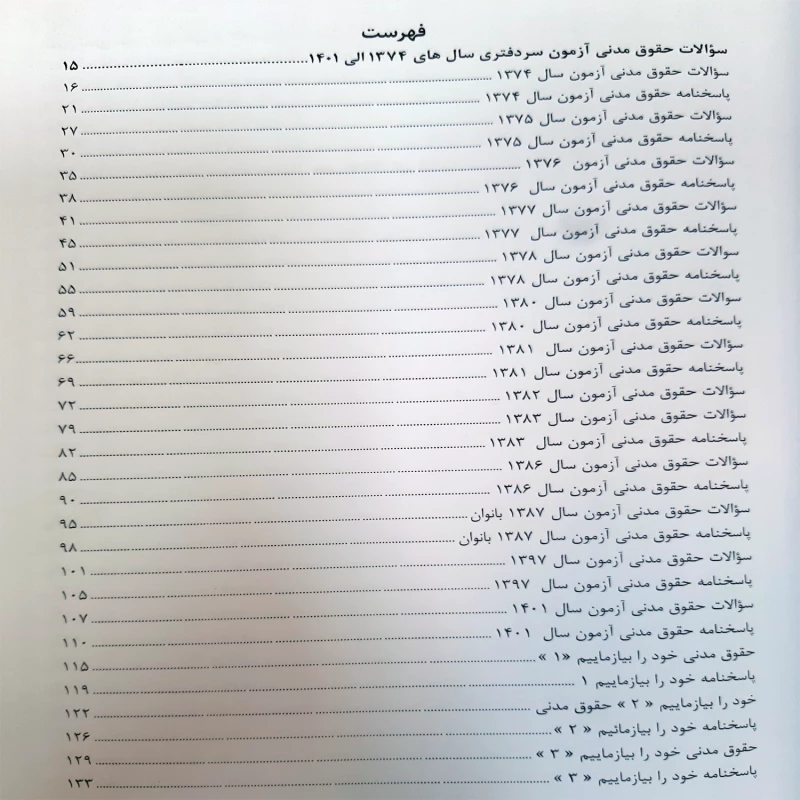 فهرست
سؤالات حقوق مدنی آزمون سردفتری سال های ۱۳۷۴ الی ۱۴۰۱ ........ ۱۵
سؤالات حقوق مدنی آزمون سال ۱۳۷۴ ........ ۱۶
پاسخنامه حقوق مدنی آزمون سال ۱۳۷۴ ........ ۲۱
سؤالات حقوق مدنی آزمون سال ۱۳۷۵ ........ ۲۷
پاسخنامه حقوق مدنی آزمون سال ۱۳۷۵ ........ ۳۰
سؤالات حقوق مدنی آزمون ۱۳۷۶ ........ ۳۵
پاسخنامه حقوق مدنی آزمون سال ۱۳۷۶ ........ ۳۸
سؤالات حقوق مدنی آزمون سال ۱۳۷۷ ........ ۴۱
پاسخنامه حقوق مدنی آزمون سال ۱۳۷۷ ........ ۴۵
سوالات حقوق مدنی آزمون سال ۱۳۷۸ ........ ۵۱
پاسخنامه حقوق مدنی آزمون سال ۱۳۷۸ ........ ۵۵
سوالات حقوق مدنی آزمون سال ۱۳۸۰ ........ ۵۹
پاسخنامه حقوق مدنی آزمون سال ۱۳۸۰ ........ ۶۲
سؤالات حقوق مدنی آزمون سال ۱۳۸۱ ........ ۶۶
پاسخنامه حقوق مدنی آزمون سال ۱۳۸۱ ........ ۶۹
سؤالات حقوق مدنی آزمون سال ۱۳۸۲ ........ ۷۲
سؤالات حقوق مدنی آزمون سال ۱۳۸۳ ........ ۷۹
پاسخنامه حقوق مدنی آزمون سال ۱۳۸۳ ........ ۸۲
سؤالات حقوق مدنی آزمون سال ۱۳۸۶ ........ ۸۵
پاسخنامه حقوق مدنی آزمون سال ۱۳۸۶ ........ ۹۰
سؤالات حقوق مدنی آزمون سال ۱۳۸۷ بانوان ........ ۹۵
پاسخنامه حقوق مدنی آزمون سال ۱۳۸۷ بانوان ........ ۹۸
سؤالات حقوق مدنی آزمون سال ۱۳۹۷ ........ ۱۰۱
پاسخنامه حقوق مدنی آزمون سال ۱۳۹۷ ........ ۱۰۵
سؤالات حقوق مدنی آزمون سال ۱۴۰۱ ........ ۱۰۷
پاسخنامه حقوق مدنی آزمون سال ۱۴۰۱ ........ ۱۱۰
حقوق مدنی خود را بیازماییم «۱ » ........ ۱۱۵
پاسخنامه خود را بیازماییم ۱ ........ ۱۱۹
خود را بیازماییم « ۲ » حقوق مدنی ........ ۱۲۲
پاسخنامه خود را بیازمائیم « ۲ » ........ ۱۲۶
حقوق مدنی خود را بیازماییم « ۳ » ........ ۱۲۹
پاسخنامه خود را بیازماییم « ۳ » ........ ۱۳۳